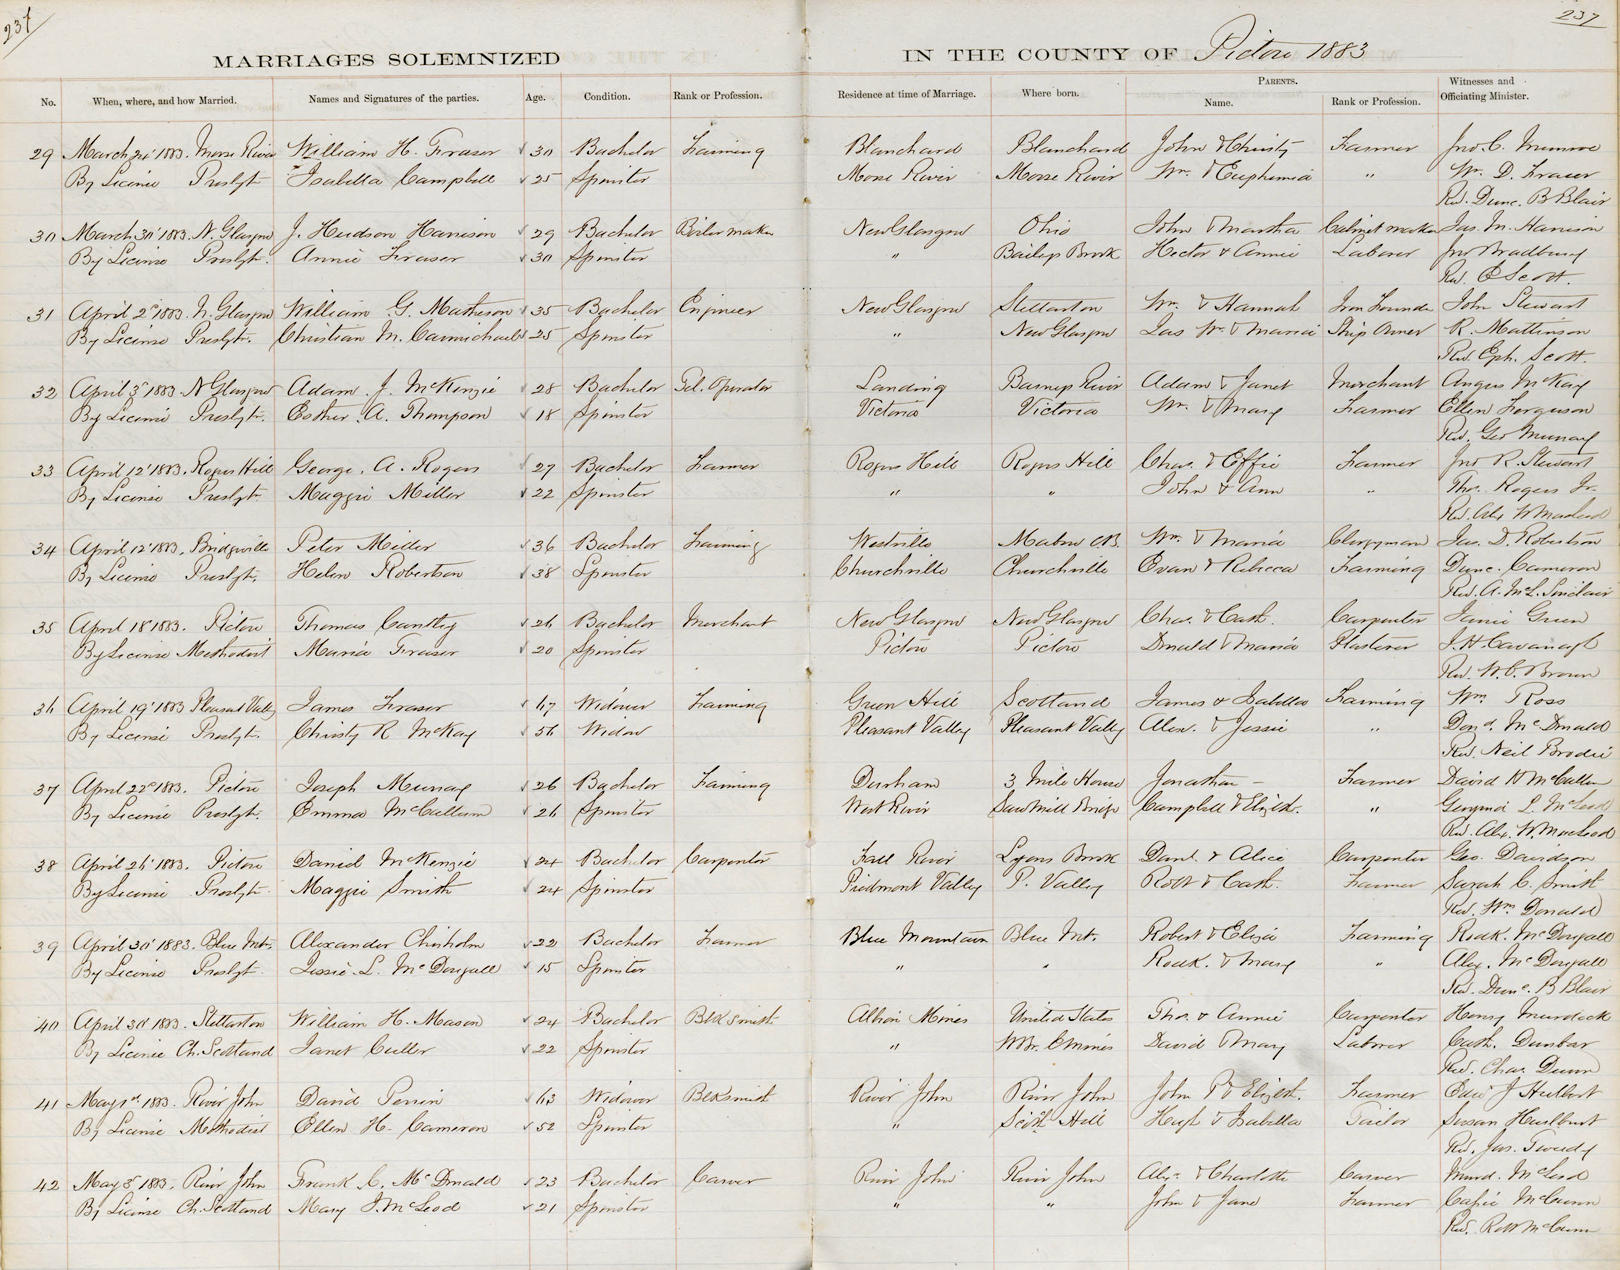 237
237
MARRIAGES SOLEMNIZED IN THE COUNTY OF Pictou 1883
No. When, where, and how Married. Names and Signatures of the parties. Age. Condition. Rank or Profession. Residence at time of Marriage. Where born. PARENTS. Name. Rank or Profession. Witnesses and Officiating Minister.
29 March 24' 1883. Moose River William H. Fraser 30 Bachelor Farming Blanchard Blanchard John & Christy Farmer Jno. C. Munroe
By License Presbyt. Isabella Campbell 25 Spinster Moose River Moose River Wm. & Euphemia " Wm. D. Fraser
Rev. Dunc. B Blair
30 March 30' 1883. N. Glasgow J. Hudson Harrison 29 Bachelor Boiler maker New Glasgow Ohio John & Martha Cabinet maker Jas. M. Harrison
By License Presbyt. Annie Fraser 30 Spinster " Bailys Brook Hector & Annie Laborer Jno Bradbury
Rev. E Scott.
31 April 2d 1883. N. Glasgow William G. Matheson 35 Bachelor Engineer New Glasgow Stellarton Wm. & Hannah Iron Founder John Stewart
By License Presbyt. Christian M. Carmichael 25 Spinster " New Glasgow Jas W. & Maria Ship Owner R. Mattinson
Rev. Eph. Scott.
32 April 3d 1883 N Glasgow Adam J. McKenzie 28 Bachelor Tel. Operator Landing Barneys River Adam & Janet Merchant Angus McKay
By License Presbyt. Esther A. Thompson 18 Spinster Victoria Victoria Wm. & Mary Farmer Ellen Ferguson
Rev. Geo Murray
33 April 12' 1883. Rogers Hill George. A. Rogers 27 Bachelor Farmer Rogers Hill Rogers Hill Chas. & Effie Farmer Jno R. Stewart
By License Presbyt. Maggie Miller 22 Spinster " " John & Ann " Thos. Rogers Jr.
Rev. Alex W MacLeod
34 April 12' 1883. Bridgeville Peter Miller 36 Bachelor Farming Westville Mabou CB. Wm. & Maria Clergyman Jas. D. Robertson
By License Presbyt. Helen Robertson 38 Spinster Churchville Churchville Evan & Rebecca Farming Dunc. Cameron
Rev. A. McL. Sinclair
35 April 18' 1883. Pictou Thomas Cantley 26 Bachelor Merchant New Glasgow New Glasgow Chas. & Cath. Carpenter Janie Green
By License Methodist Maria Fraser 20 Spinster Pictou Pictou Donald & Maria Plasterer J. H. Cavanagh
Rev. W. C. Brown
36 April 19' 1883 Pleasant Valley James Fraser 67 Widower Farming Green Hill Scotland James & Isabella Farming Wm Ross
By License Presbyt. Christy R McKay 56 Widow Pleasant Valley Pleasant Valley Alex. & Jessie " Dond. McDonald
Rev. Neil Brodie
37 April 22d 1883. Pictou Joseph Murray 26 Bachelor Farming Durham 3 Mile House Jonathan — Farmer David H McCullum
By License Presbyt. Emma McCullum 26 Spinster West River Saw Mill Bridge Campbell & Elizth. " L. McLeod
Rev. Alex. W. MacLeod
38 April 26' 1883. Pictou Daniel McKenzie 24 Bachelor Carpenter Fall River Lyons Brook Danl. & Alice Carpenter Geo. Davidson
By License Presbyt. Maggie Smith 24 Spinster Piedmont Valley P. Valley Robt & Cath. Farmer Sarah C. Smith
Rev. Wm Donald
39 April 30' 1883. Blue Mt. Alexander Chisholm 22 Bachelor Farmer Blue Mountain Blue Mt. Robert & Eliza Farming Rodk. McDougall
By License Presbyt. Jessie L. McDougall 15 Spinster " " Rodk. & Mary " Alex. McDougall
Rev. Dunc. B Blair
40 April 30' 1883. Stellarton William H. Mason 24 Bachelor Blksmith. Albion Mines United States Thos. & Annie Carpenter Henry Murdock
By License Ch. Scotland Janet Culler 22 Spinster " David & Mary Laborer Cath. Dunbar
Rev. Chas. Dunn
41 May 1st 1883. River John David Perrin 63 Widower Blksmith River John River John John P & Elizth. Farmer Edw J Hulbert
By License Methodist Ellen H. Cameron 52 Spinster " Scotch Hill Hugh & Isabella Tailor Susan Hurlburt
Rev. Jas. Tweedy
42 May 3d 1883. River John Frank C. McDonald 23 Bachelor Carver River John River John Alexr & Charlotte Carver Murd. McLeod
By License Ch. Scotland Mary J. McLeod 21 Spinster " " John & Jane Farmer McCunn
Rev. Robt McCunn